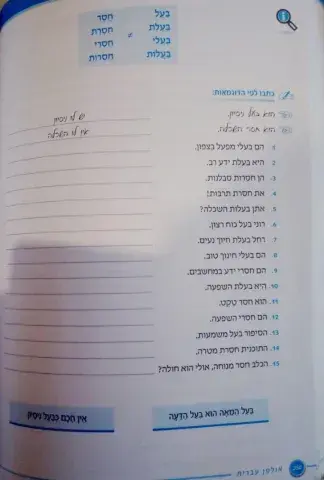 בַּעַל ≠ חֲסַר
בַּעֲלַת חַסְרַת
בַּעֲלֵי חַסְרֵי
בַּעֲלוֹת חַסְרוֹת
כתבו לפי הדוגמאות:
הוא בעל ניסיון. יש לו ניסיון
היא חסרת השכלה. אין לה השכלה
1. הם בעלי מפעל בצפון.
2. היא בעלת ידע רב.
3. הן חסרות סבלנות.
4. את חסרת תרבות!
5. אתן בעלות השכלה?
6. רוני בעל כוח רצון.
7. רחל בעלת חיוך נעים.
8. הם בעלי חינוך טוב.
9. הם חסרי ידע במחשבים.
10. היא בעלת השפעה.
11. הוא חסר טקט.
12. הם חסרי השפעה.
13. הסיפור בעל משמעות.
14. התוכנית חסרת מטרה.
15. הכלב חסר מנוחה, אולי הוא חולה?
בעל המאה הוא בעל הדעה
אין חכם כבעל ניסיון.
אולפן עברית